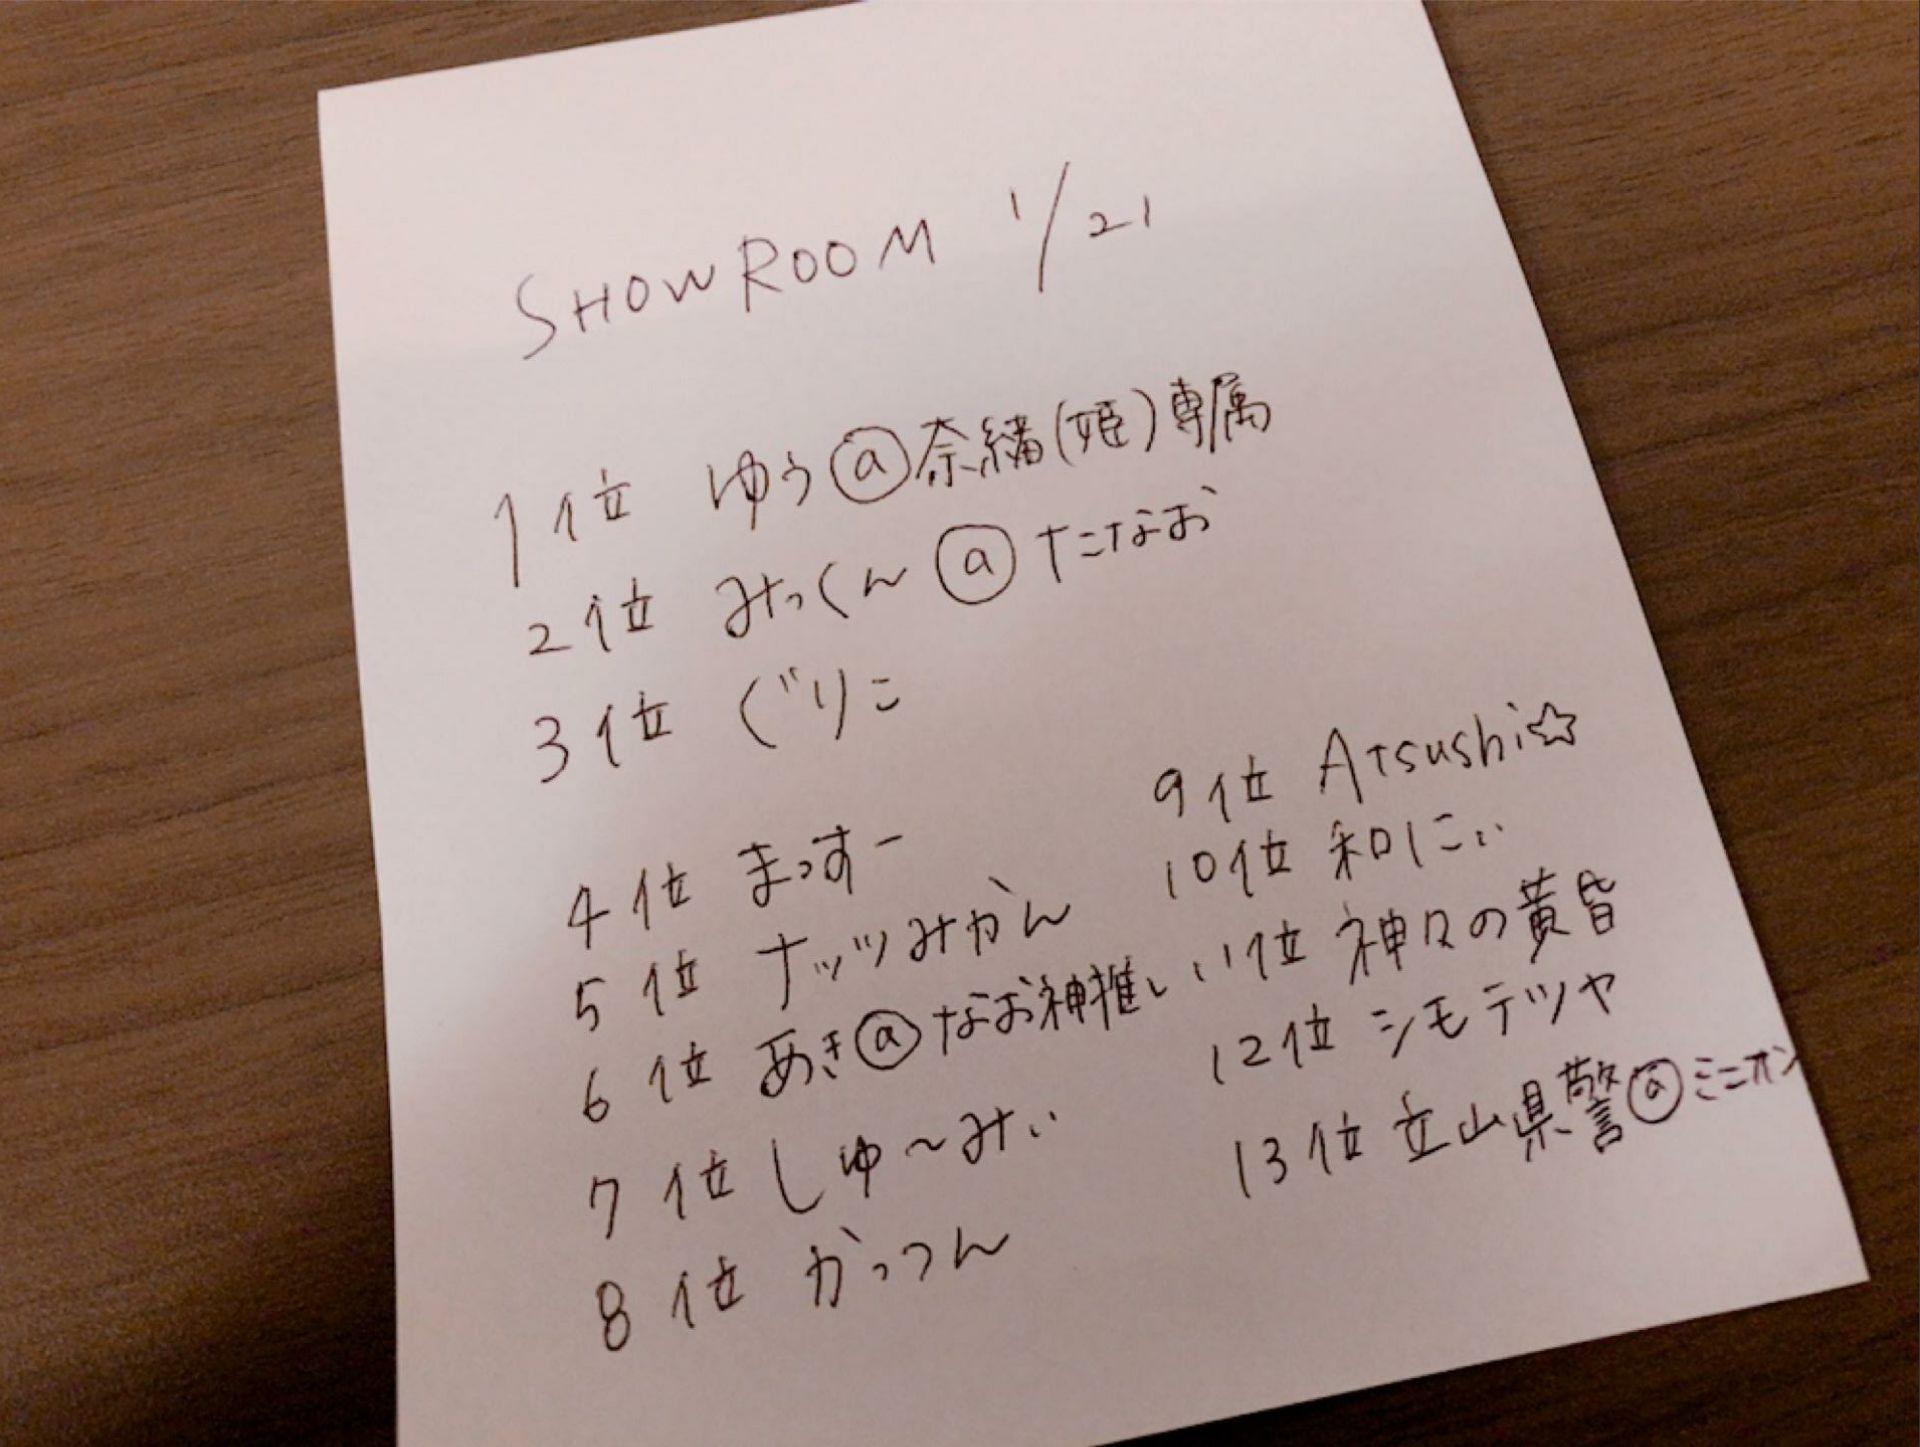 SHOWROOM 1/21
1位 ゆう@奈緒(姫)専属
2位 みっくん@たなお
3位 ぐりこ
4位 まっすー
5位 ナッツみかん
6位 あき@なお神推し
7位 しゅ〜みぃ
8位 かっつん
9位 Atsushi☆
10位 和にぃ
11位 神々の黄昏
12位 シモテツヤ
13位 立山県警@ミニオン